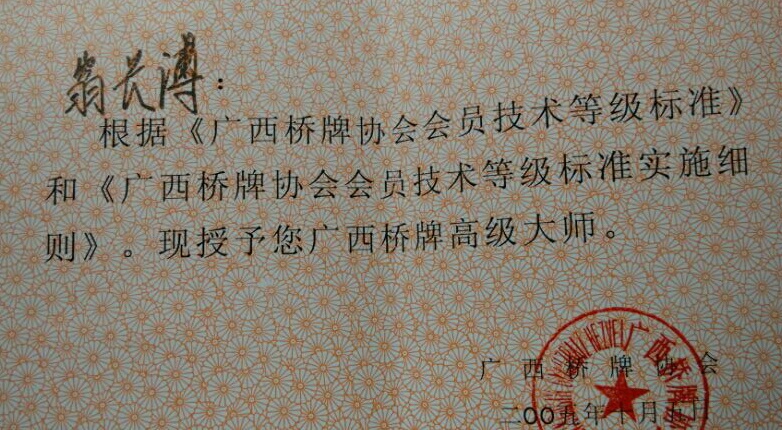 翁长溥：
根据《广西桥牌协会会员技术等级标准》
和《广西桥牌协会会员技术等级标准实施细
则》。现授予您广西桥牌高级大师。
广西桥牌协会
二00五年十月五日
广西桥牌